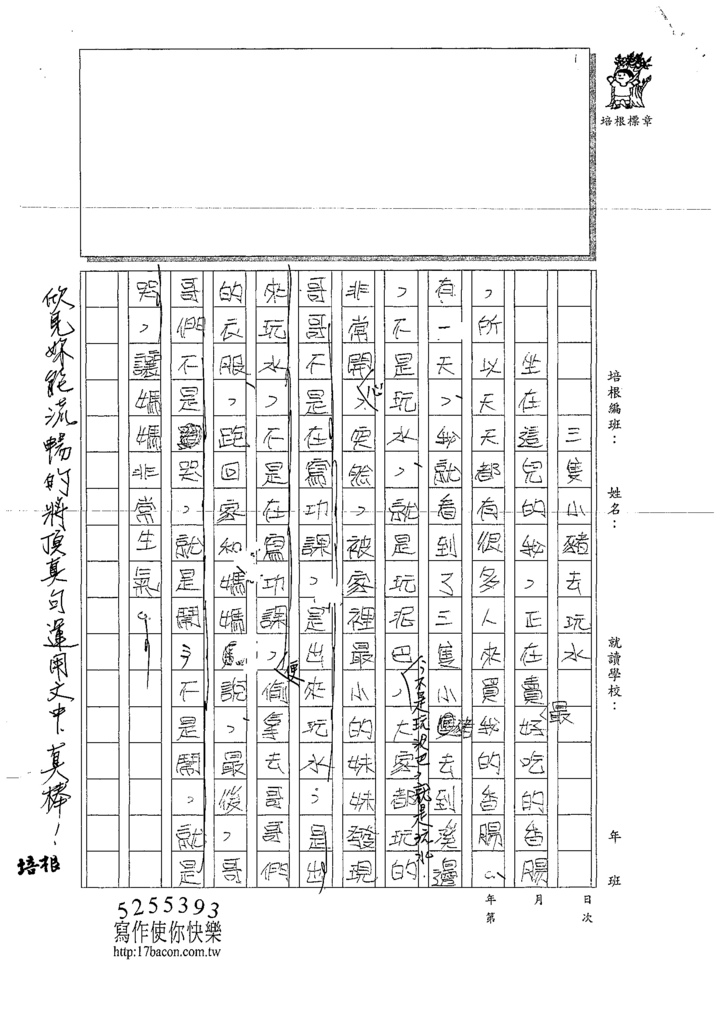 培根標章
培根編班：
姓名：
就讀學校：
年 班
年 月 日
第 次
三隻小豬去玩水
坐在這兒的我，正在賣最好吃的香腸
，所以天天都有很多人來買我的香腸。
有一天，我就看到了三隻小豬去到溪邊
，不是玩水，就是玩泥巴，大家都玩的
，不是玩泥巴，就是玩水。
非常開心，突然，被家裡最小的妹妹發現
哥哥不是在寫功課，是出來玩水，哥哥是出
來玩水，不是在寫功課，便偷拿去哥哥們
的衣服，跑回家和媽媽說，最後，哥
哥們不是哭，就是鬧，不是鬧，就是
哭，讓媽媽非常生氣。
欣見妳能流暢的將頂真句運用文中，真棒！
培根
5255393
寫作使你快樂
http:17bacon.com.tw